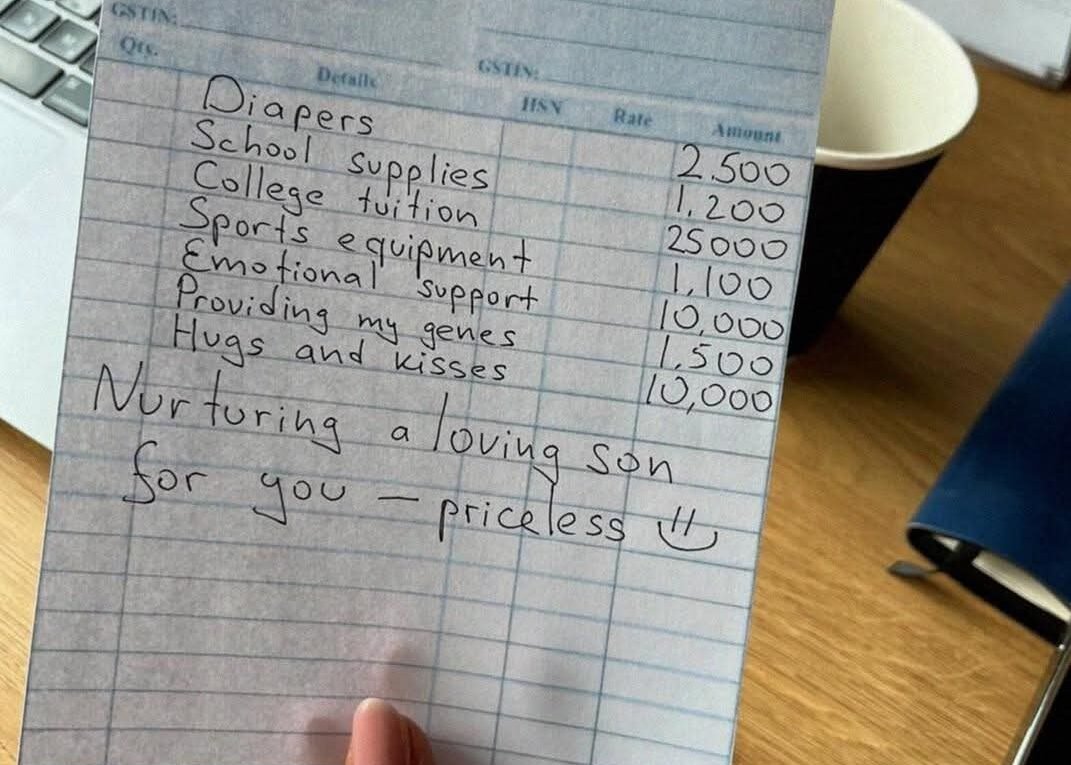 GSTIN:
GSTIN:
Qty. Details HSN Rate Amount
Diapers 2.500
School supplies 1,200
College tuition 25000
Sports equipment 1,100
Emotional support 10,000
Providing my genes 1,500
Hugs and kisses 10,000
Nurturing a loving son
for you – priceless